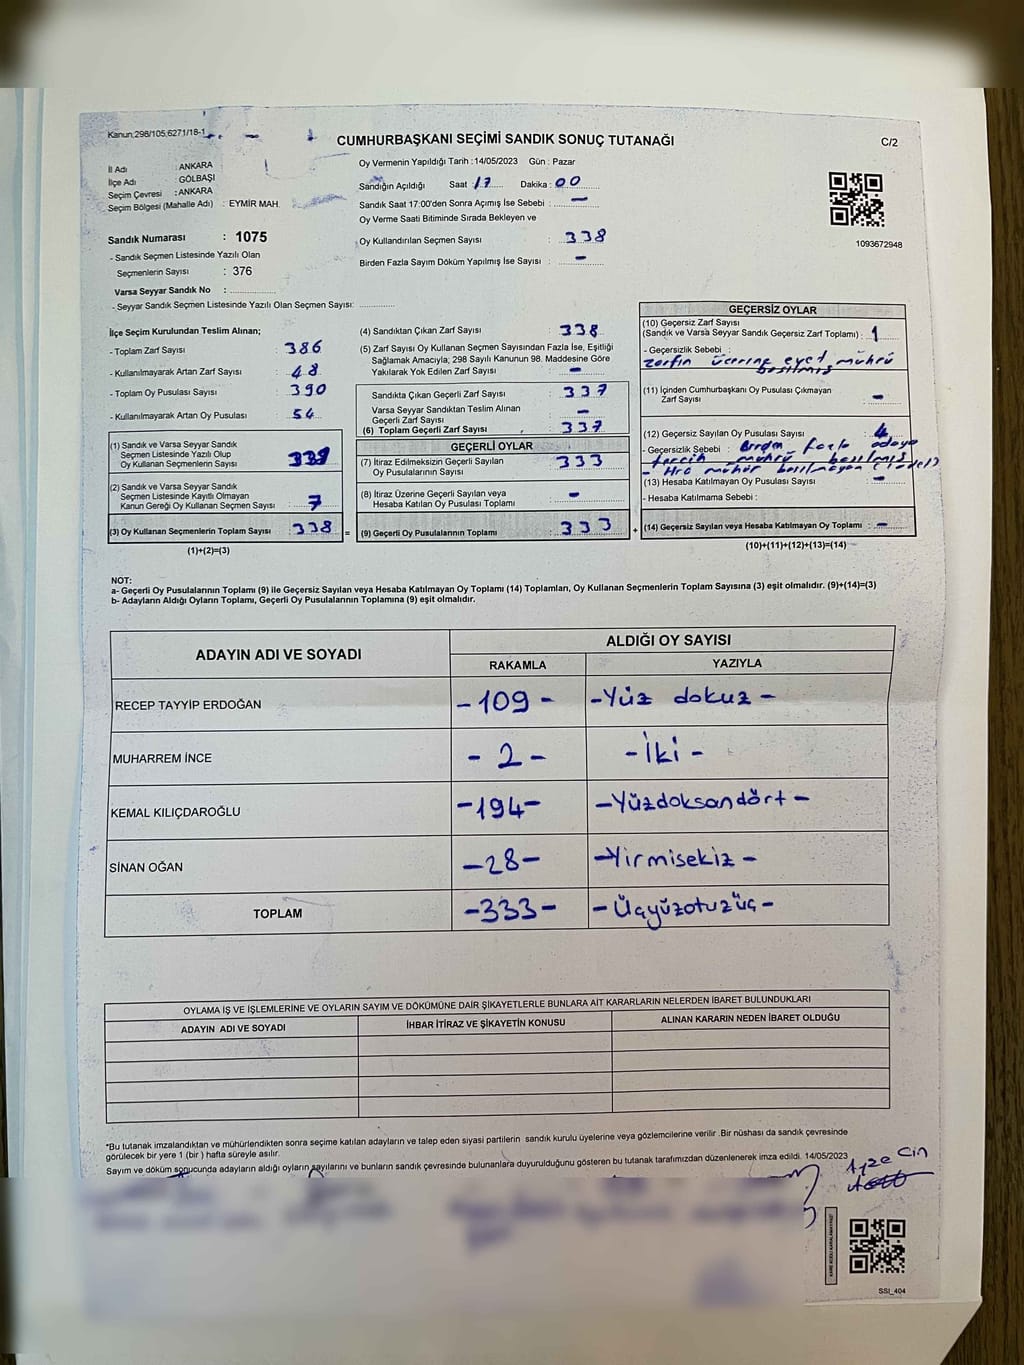 Kanun:298/105,6271/18-1
CUMHURBAŞKANI SEÇİMİ SANDIK SONUÇ TUTANAĞI
C/2
İl Adı : ANKARA
İlçe Adı : GÖLBAŞI
Seçim Çevresi : ANKARA
Seçim Bölgesi (Mahalle Adı) : EYMİR MAH.
Oy Vermenin Yapıldığı Tarih :14/05/2023 Gün : Pazar
Sandığın Açıldığı Saat : 17 Dakika : 00
Sandık Saat 17:00'den Sonra Açımış İse Sebebi : -
Oy Verme Saati Bitiminde Sırada Bekleyen ve
Oy Kullandırılan Seçmen Sayısı : 338
Birden Fazla Sayım Döküm Yapılmış İse Sayısı : -
1093672948
Sandık Numarası : 1075
- Sandık Seçmen Listesinde Yazılı Olan
Seçmenlerin Sayısı : 376
Varsa Seyyar Sandık No :
- Seyyar Sandık Seçmen Listesinde Yazılı Olan Seçmen Sayısı:
İlçe Seçim Kurulundan Teslim Alınan;
- Toplam Zarf Sayısı : 386
- Kullanılmayarak Artan Zarf Sayısı : 48
- Toplam Oy Pusulası Sayısı : 390
- Kullanılmayarak Artan Oy Pusulası : 54
(1) Sandık ve Varsa Seyyar Sandık
Seçmen Listesinde Yazılı Olup
Oy Kullanan Seçmenlerin Sayısı :
(2) Sandık ve Varsa Seyyar Sandık
Seçmen Listesinde Kayıtlı Olmayan
Kanun Gereği Oy Kullanan Seçmen Sayısı : 7
(3) Oy Kullanan Seçmenlerin Toplam Sayısı : 338
(1)+(2)=(3)
(4) Sandıktan Çıkan Zarf Sayısı : 338
(5) Zarf Sayısı Oy Kullanan Seçmen Sayısından Fazla İse, Eşitliği
Sağlamak Amacıyla; 298 Sayılı Kanunun 98. Maddesine Göre
Yakılarak Yok Edilen Zarf Sayısı : -
Sandıkta Çıkan Geçerli Zarf Sayısı : 337
Varsa Seyyar Sandıktan Teslim Alınan
Geçerli Zarf Sayısı : -
(6) Toplam Geçerli Zarf Sayısı : 337
GEÇERLİ OYLAR
(7) İtiraz Edilmeksizin Geçerli Sayılan
Oy Pusulalarının Sayısı : 333
(8) İtiraz Üzerine Geçerli Sayılan veya
Hesaba Katılan Oy Pusulası Toplamı : -
= (9) Geçerli Oy Pusulalarının Toplamı : 333 +
GEÇERSİZ OYLAR
(10) Geçersiz Zarf Sayısı
(Sandık ve Varsa Seyyar Sandık Geçersiz Zarf Toplamı) : 1
- Geçersizlik Sebebi :
zarfın üzerine evet mührü
basılmış
(11) İçinden Cumhurbaşkanı Oy Pusulası Çıkmayan
Zarf Sayısı : -
(12) Geçersiz Sayılan Oy Pusulası Sayısı : 4
- Geçersizlik Sebebi : Birden fazla adaya
tercih mührü basılmış
- Hiç mühür basılmayan (1 adet)
(13) Hesaba Katılmayan Oy Pusulası Sayısı : -
- Hesaba Katılmama Sebebi :
(14) Geçersiz Sayılan veya Hesaba Katılmayan Oy Toplamı : -
(10)+(11)+(12)+(13)=(14)
NOT:
a- Geçerli Oy Pusulalarının Toplamı (9) ile Geçersiz Sayılan veya Hesaba Katılmayan Oy Toplamı (14) Toplamları, Oy Kullanan Seçmenlerin Toplam Sayısına (3) eşit olmalıdır. (9)+(14)=(3)
b- Adayların Aldığı Oyların Toplamı, Geçerli Oy Pusulalarının Toplamına (9) eşit olmalıdır.
ADAYIN ADI VE SOYADI ALDIĞI OY SAYISI
RAKAMLA YAZIYLA
RECEP TAYYİP ERDOĞAN -109- -Yüz dokuz-
MUHARREM İNCE -2- -İki-
KEMAL KILIÇDAROĞLU -194- -Yüzdoksandört-
SİNAN OĞAN -28- -Yirmisekiz-
TOPLAM -333- -Üçyüzotuzüç-
OYLAMA İŞ VE İŞLEMLERİNE VE OYLARIN SAYIM VE DÖKÜMÜNE DAİR ŞİKAYETLERLE BUNLARA AİT KARARLARIN NELERDEN İBARET BULUNDUKLARI
ADAYIN ADI VE SOYADI İHBAR İTİRAZ VE ŞİKAYETİN KONUSU ALINAN KARARIN NEDEN İBARET OLDUĞU
*Bu tutanak imzalandıktan ve mühürlendikten sonra seçime katılan adayların ve talep eden siyasi partilerin sandık kurulu üyelerine veya gözlemcilerine verilir .Bir nüshası da sandık çevresinde
görülecek bir yere 1 (bir ) hafta süreyle asılır.
Sayım ve döküm sonucunda adayların aldığı oyların sayılarını ve bunların sandık çevresinde bulunanlara duyurulduğunu gösteren bu tutanak tarafımızdan düzenlenerek imza edildi. 14/05/2023
Ayşe Cin
SSI_404